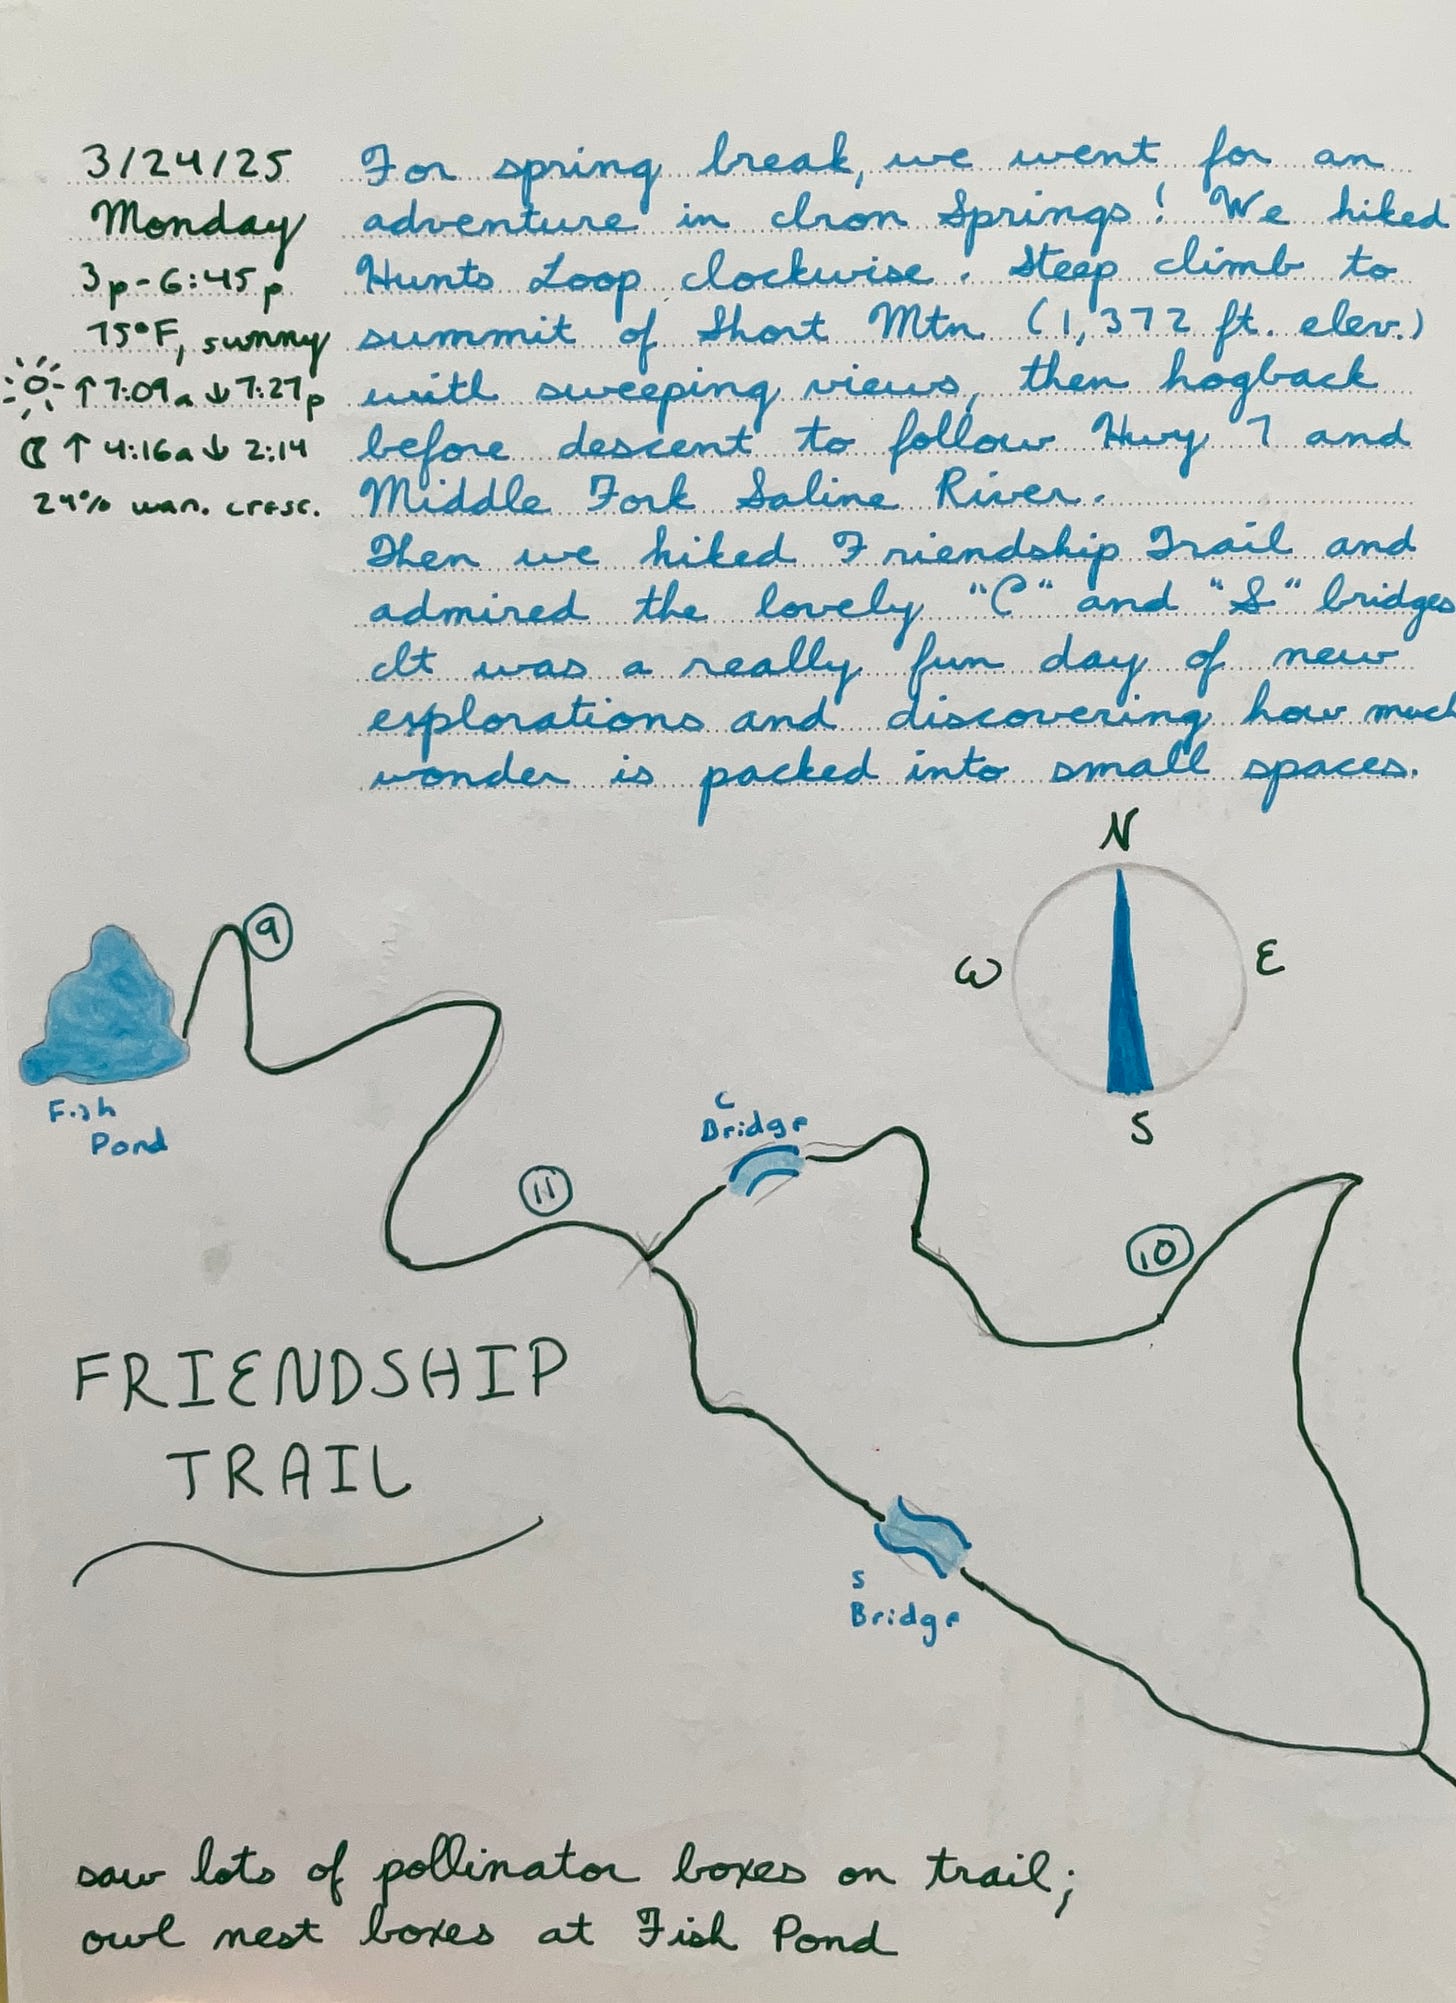 3/24/25
Monday
3p-6:45p
75°F, sunny
↑7:09a ↓7:27p
☾ ↑ 4:16a ↓ 2:14
24% wan. cresc.
For spring break, we went for an
adventure in Iron Springs! We hiked
Hunts Loop clockwise. Steep climb to
summit of Short Mtn (1,372 ft. elev.)
with sweeping views, then hogback
before descent to follow Hwy 7 and
Middle Fork Saline River.
Then we hiked Friendship Trail and
admired the lovely "C" and "S" bridges
It was a really fun day of new
explorations and discovering how much
wonder is packed into small spaces.
N
W
E
S
9
Fish
Pond
C
Bridge
11
10
FRIENDSHIP
TRAIL
S
Bridge
saw lots of pollinator boxes on trail;
owl nest boxes at Fish Pond